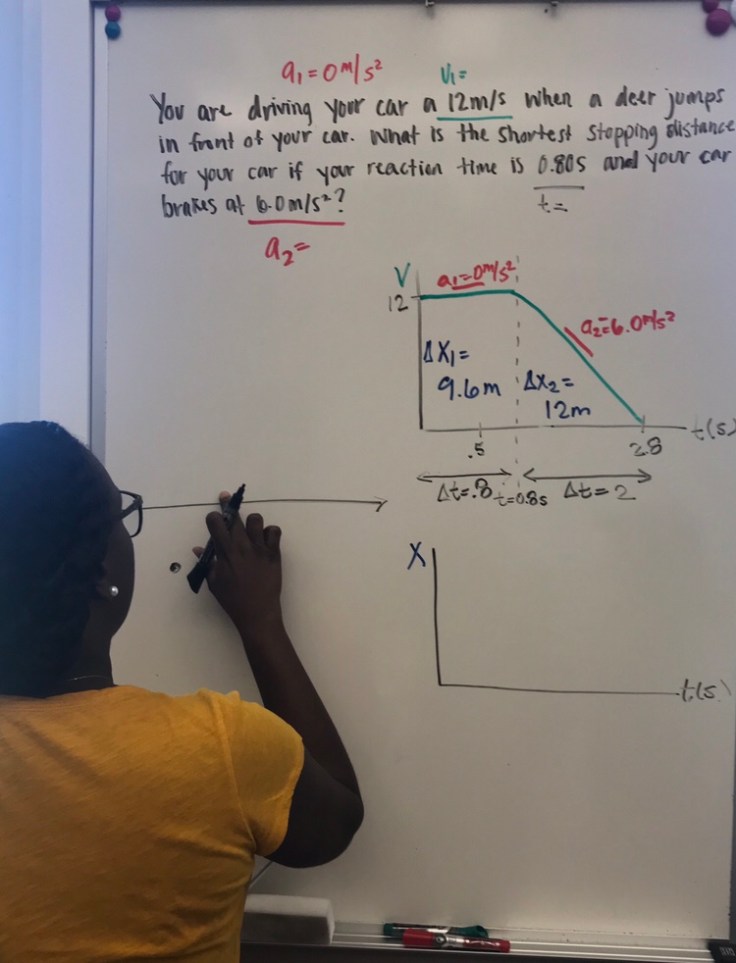 a₁ = 0 m/s² V₁ =
You are driving your car a 12m/s when a deer jumps
in front of your car. What is the shortest stopping distance
for your car if your reaction time is 0.80s and your car
brakes at 6.0 m/s²?
t =
a₂ =
V a₁=0m/s²
12
a₂=6.0m/s²
ΔX₁=
9.6m
Δx₂=
12m
t(s)
.5 2.8
Δt=.8 t=0.8s Δt=2
X
t(s)